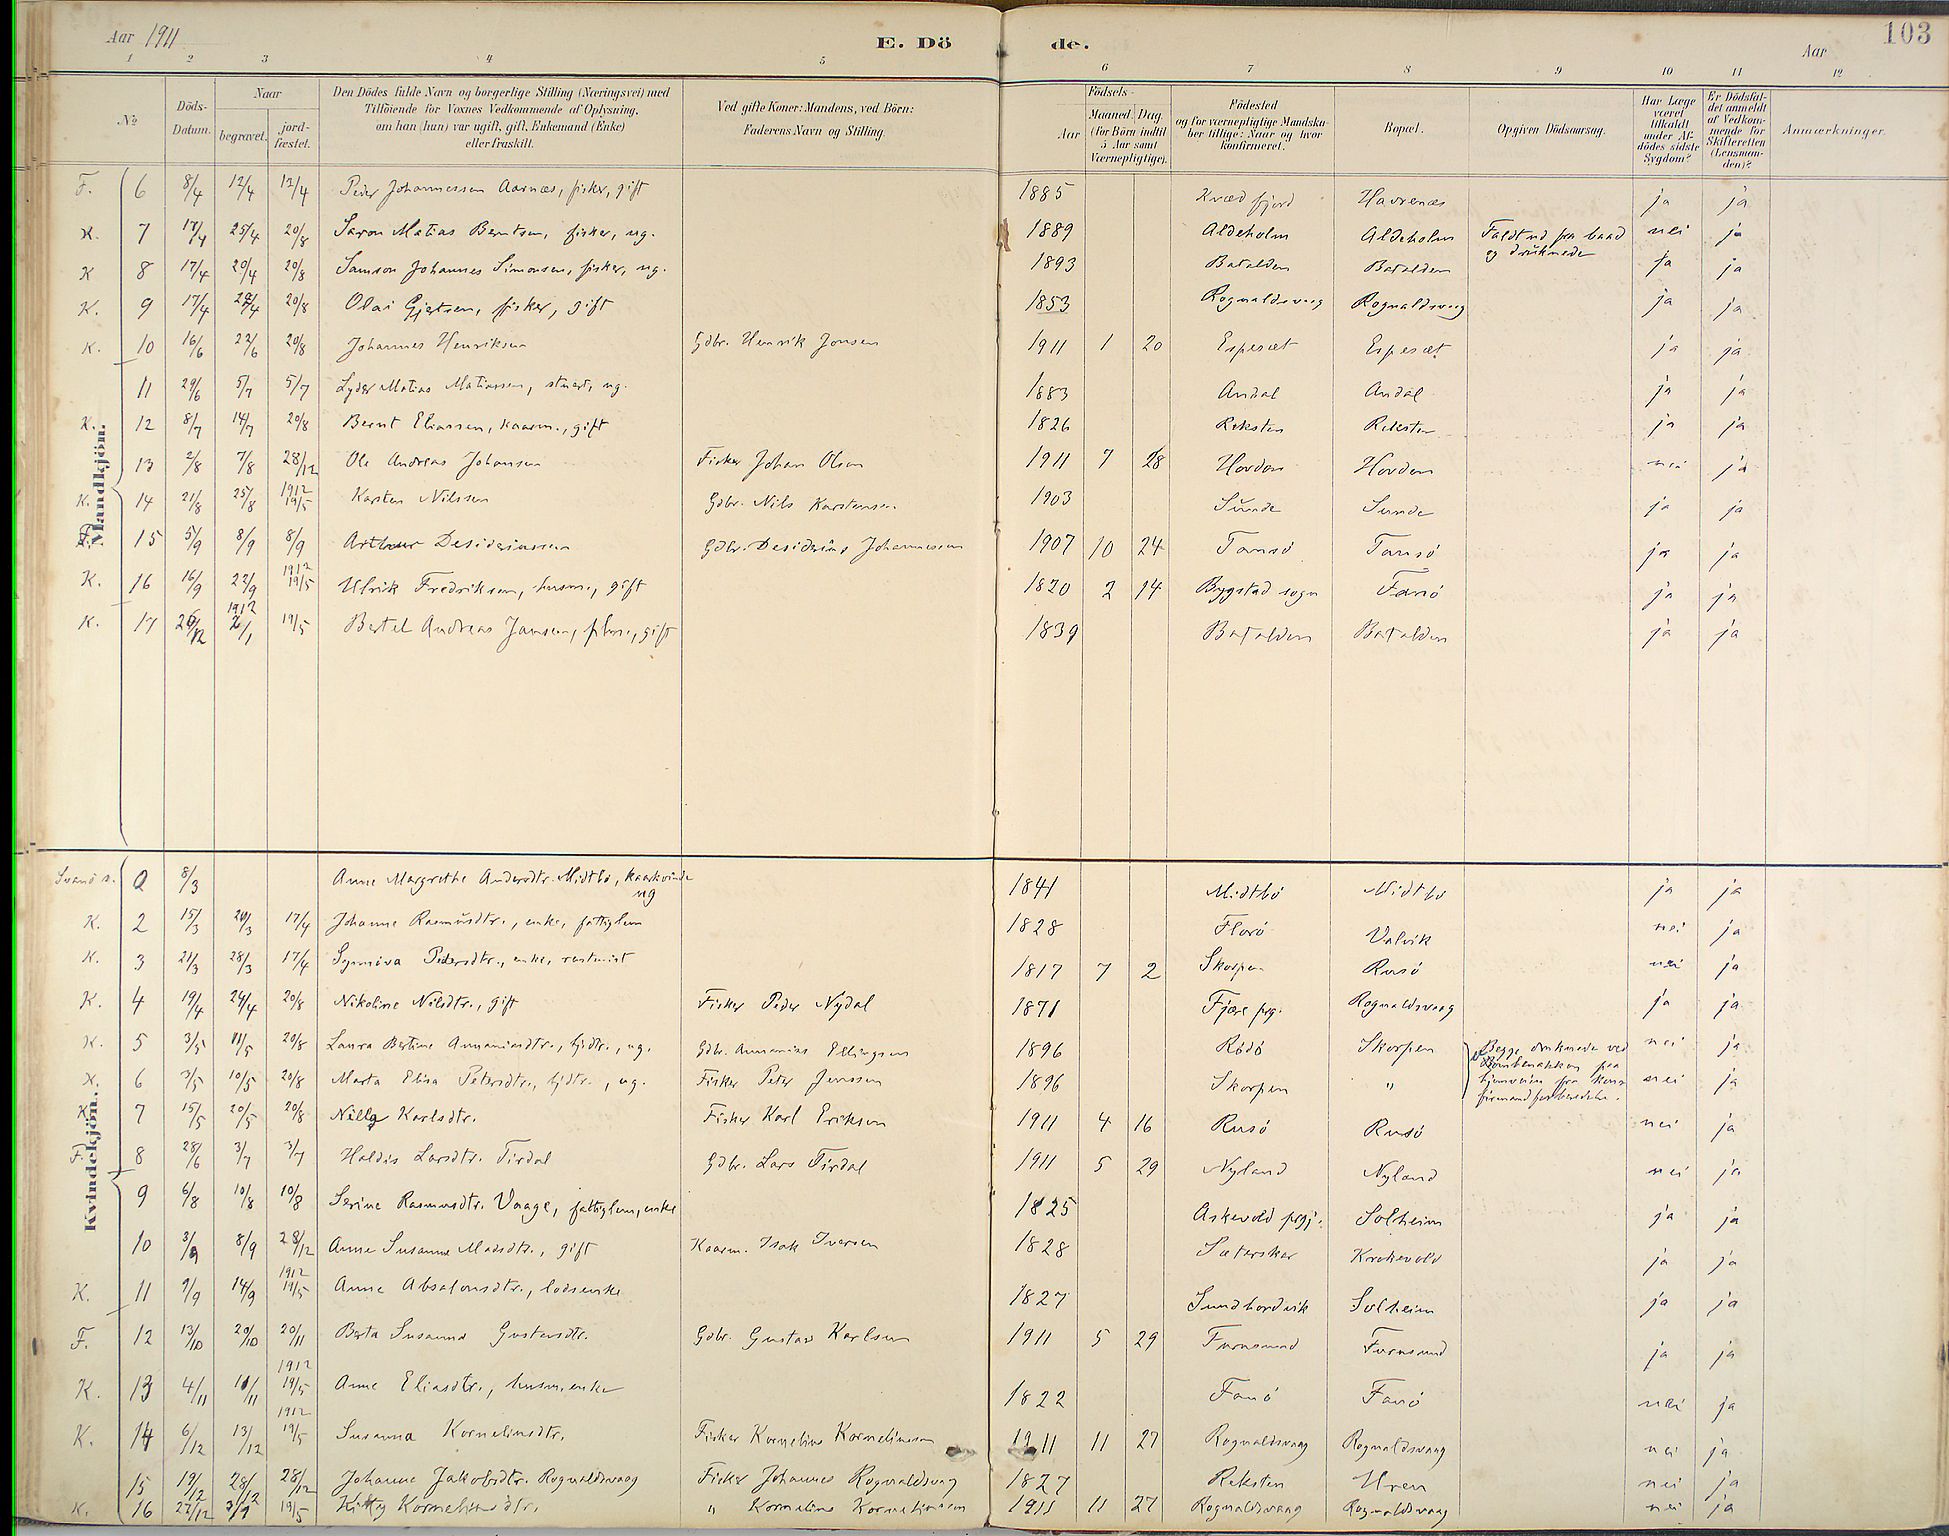 Aar 1911 E. Dö de. Aar 103
1 2 3 4 5 6 7 8 9 10 11 12
№ Döds-Datum. Naar begravet. jord-fæstet. Den Dödes fulde Navn og borgerlige Stilling (Næringsvei) med Tilföiende for Voxnes Vedkommende af Oplysning, om han (hun) var ugift, gift, Enkemand (Enke) eller fraskilt. Ved gifte Koner: Mandens, ved Börn: Faderens Navn og Stilling. Födsels- Aar Maaned. Dag. (for Börn indtil 5 Aar samt Værnepligtige). Födested og for værnepligtige Mandska-ber tillige: Naar og hvor konfirmeret. Bopæl. Opgiven Dödsaarsag. Har Læge været tilkaldt under Af-dödes sidste Sygdom? Er Dödsfal-det anmeldt af Vedkom-mende for Skifteretten (Lensman-den)? Anmærkninger.
Mandkjön.
F. 6 8/4 12/4 12/4 Peder Johannessen Aarnæs, fisker, gift 1885 Kvædfjord Havrenæs ja ja
K. 7 17/4 25/4 20/8 Saron Matias Berntsen, fisker, ug. 1889 Aldeholm Aldeholm Faldt ud fra baad og druknede nei ja
K 8 17/4 20/4 20/8 Samson Johannes Simonsen, fisker, ug. 1893 Batalden Batalden ja ja
K. 9 17/4 /4 20/8 Olai Gjertsen, fisker, gift 1853 Rognaldsvaag Rognaldsvaag ja ja
K. 10 16/6 22/6 20/8 Johannes Henriksen Gdbr. Henrik Jonsen 1911 1 20 Espeset Espeset ja ja
11 29/6 5/7 5/7 Lyder Matias Matiassen, stuert, ug. 1883 Andal Andal ja ja
K. 12 8/7 14/7 20/8 Bernt Eliassen, kaarm., gift 1826 Reksten Reksten ja ja
13 2/8 7/8 28/12 Ole Andreas Johansen Fisker Johan Olsen 1911 7 Hovden Hovden nei ja
K. 14 21/8 25/8 1912 19/5 Karsten Nilssen Gdbr. Nils Karstensen 1903 Sunde Sunde ja ja
F. 15 5/9 8/9 8/9 Arthur Desideriussen Gdbr. Desiderius Johannessen 1907 10 24 Tansö Tansö ja ja
K. 16 16/9 22/9 1912 19/5 Ulrik Fredriksen, husm., gift 1820 2 14 Bygstad sogn Fanö ja ja
K. 17 26/12 1912 2/1 19/5 Bertel Andreas Jansen, gift 1839 Batalden Batalden ja ja
Kvindekjön.
Svanö s. 8/3 Anne Margrethe Andersdtr. Midtbö, kaarkvinde ug 1841 Midtbö Midtbö ja ja
K. 2 15/3 20/3 17/4 Johanne Rasmusdtr., enke, fattiglem 1828 Florö Valvik nei ja
K. 3 21/3 28/3 17/4 Synnöva Pedersdtr., enke, 1817 7 2 Skorpen Rusö nei ja
K. 4 19/4 24/4 20/8 Nikoline Nilsdtr., gift Fisker Peder Nydal 1871 Fjære prg. Rognaldsvaag ja ja
K. 5 3/5 11/5 20/8 Laura Bertine Annaniasdtr., hjdtr., ug. Gdb. Annanias Ellingsen 1896 Rödö Skorpen Begge druknede ved paa hjemveien fra konfirmandforberedelse. nei ja
K. 6 3/5 10/5 20/8 Marta Elisa Petersdtr., hjdtr., ug. Fisker Peter Jenssen 1896 Skorpen " nei ja
K. 7 15/5 20/5 20/8 Nilly Karlsdtr. Fisker Karl Eriksen 1911 4 16 Rusö Rusö nei ja
F. 8 28/6 3/7 3/7 Haldis Larsdtr. Tirdal Gdbr. Lars Tirdal 1911 5 29 Nyland Nyland nei ja
9 6/8 10/8 10/8 Serine Rasmusdtr. Vaage, fattiglem, enke 1825 Askevold prgj. Solheim ja ja
10 3/9 8/9 28/12 Anne Susanne Madsdtr., gift Kaarm. Isak Iversen 1828 Sæterskar Krokevold ja ja
K. 11 9/9 14/9 1912 19/5 Anne Absalonsdtr., losenke 1827 Sundbordvik Solheim ja ja
F. 12 13/10 20/10 20/11 Berta Susanna Gustavsdtr. Gdbr. Gustav Karlsen 1911 5 29 Furusund Furusund ja ja
K. 13 4/11 11/11 1912 19/5 Anne Eliasdtr., husm.enke 1822 Fanö Fanö nei ja
K. 14 6/12 13/12 1912 19/5 Susanna Korneliusdtr. Fisker Kornelius Korneliussen 1911 11 27 Rognaldsvaag Rognaldsvaag nei ja
15 19/12 28/12 28/12 Johanne Jakobsdtr. Rognaldsvaag Fisker Johannes Rognaldsvaag 1827 Reksten Hven nei ja
K. 16 27/12 3/1 19/5 Kitty Korneliusdtr. " Kornelius Korneliussen 1911 11 27 Rognaldsvaag Rognaldsvaag nei ja